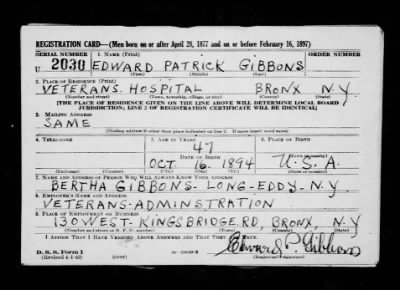 REGISTRATION CARD—(Men born on or after April 28, 1877 and on or before February 16, 1897)
SERIAL NUMBER 1. NAME (Print) ORDER NUMBER
U 2030 EDWARD PATRICK GIBBONS
(First) (Middle) (Last)
2. PLACE OF RESIDENCE (Print)
VETERANS. HOSPITAL BRONX N.Y
(Number and street) (Town, township, village, or city) (County) (State)
[THE PLACE OF RESIDENCE GIVEN ON THE LINE ABOVE WILL DETERMINE LOCAL BOARD
JURISDICTION; LINE 2 OF REGISTRATION CERTIFICATE WILL BE IDENTICAL]
3. MAILING ADDRESS
SAME
[Mailing address if other than place indicated on line 2. If same insert word same]
4. TELEPHONE 5. AGE IN YEARS 6. PLACE OF BIRTH
47
DATE OF BIRTH
OCT. 16. 1894 U.S.A.
7. NAME AND ADDRESS OF PERSON WHO WILL ALWAYS KNOW YOUR ADDRESS
BERTHA GIBBONS- LONG-EDDY-N.Y.
8. EMPLOYER'S NAME AND ADDRESS
VETERANS-ADMINSTRATION
9. PLACE OF EMPLOYMENT OR BUSINESS
130 WEST-KINGSBRIDGE.RD, BRONX, N.Y
(Number and street or R. F. D. number) (Town) (County) (State)
I AFFIRM THAT I HAVE VERIFIED ABOVE ANSWERS AND THAT THEY ARE TRUE.
D. S. S. Form 1 Edward P. Gibbons
(Revised 4-1-42) (Registrant's signature)